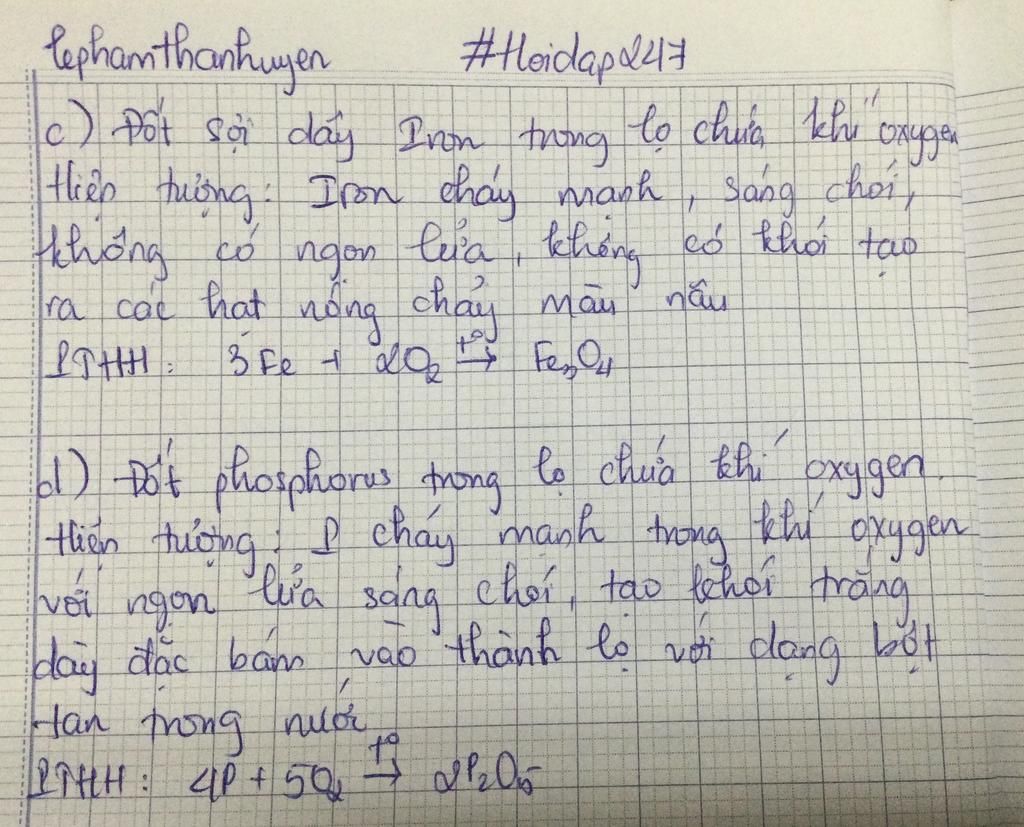 lephamthanhuyen #Hoidap247
c) Đốt sợi dây Iron trong lọ chứa khí oxygen
Hiện tượng: Iron cháy mạnh, sáng chói,
không có ngọn lửa, không có khói tạo
ra các hạt nóng chảy màu nâu
PTHH: 3Fe + 2O₂ t°→ Fe₃O₄
d) Đốt phosphorus trong lọ chứa khí oxygen.
Hiện tượng: P cháy mạnh trong khí oxygen
với ngọn lửa sáng chói, tạo khói trắng
dày đặc bám vào thành lọ với dạng bột
tan trong nước
PTHH: 4P + 5O₂ t°→ 2P₂O₅